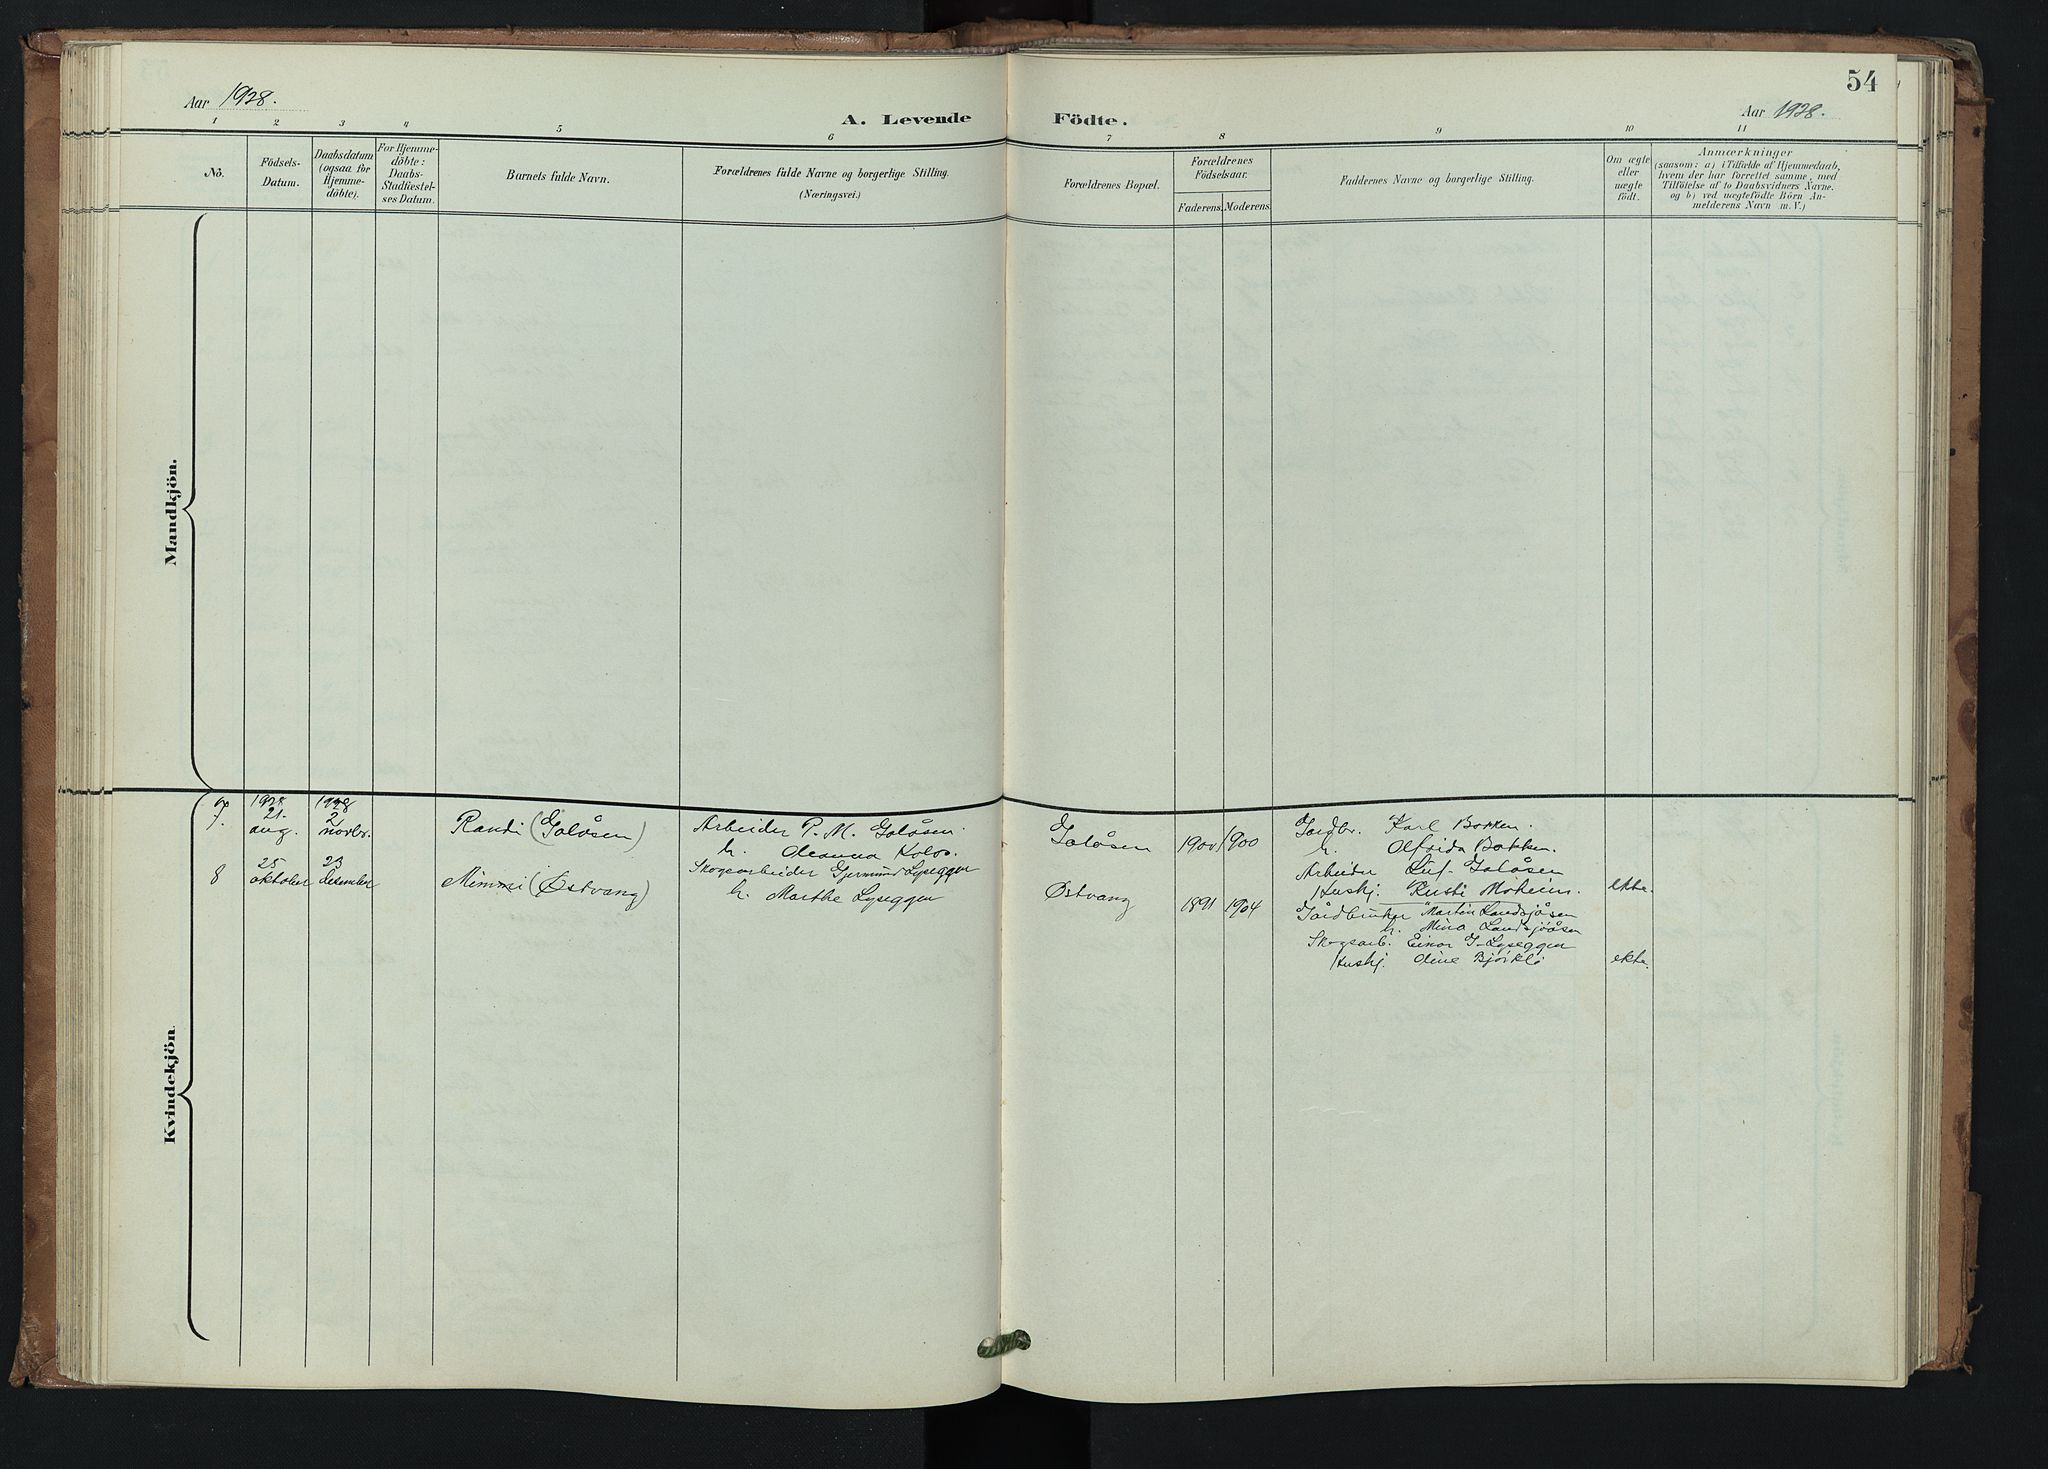 Aar 1928.
A. Levende Födte.
54
Aar 1928.
1 2 3 4 5 6 7 8 9 10 11
No.
Födsels-Datum.
Daabsdatum (ogsaa for Hjemme-döbte).
For Hjemme-döbte: Daabs-Stadfæstel-ses Datum.
Barnets fulde Navn.
Forældrenes fulde Navne og borgerlige Stilling.
(Næringsvei.)
Forældrenes Bopæl.
Forældrenes Födselsaar.
Faderens. Moderens.
Faddernes Navne og borgerlige Stilling.
Om ægte eller uægte födt.
Anmærkninger
(saasom: a) i Tilfælde af Hjemmedaab,
hvem der har forrettet samme, med
Tilföielse af to Daabsvidners Navne.
og b) ved uægtefödte Börn An-
melderens Navn m. V.)
Mandkjön.
Kvindekjön.
7. 1928 21. aug. 1928 2 novbr. Randi (Galåsen) Arbeider P. M. Galåsen.
h. Oleanna Kolos.
Galåsen 1900 1900
Gardbr. Karl Bakken.
h. Alfrida Bakken.
Arbeider Galåsen
Huskj. Kristi Moheim. ekte.
8 25 oktober 23 desember Mimmi (Østvang) Skogsarbeider Gjermund Lyseggen
h. Marthe Lyseggen
Østvang 1891 1904
Gårdbruker Martin Landsjøåsen
h. Mina Landsjøåsen
Skogsarb. Einar G. Lyseggen
Huskj. Oline Bjørklo ekte.